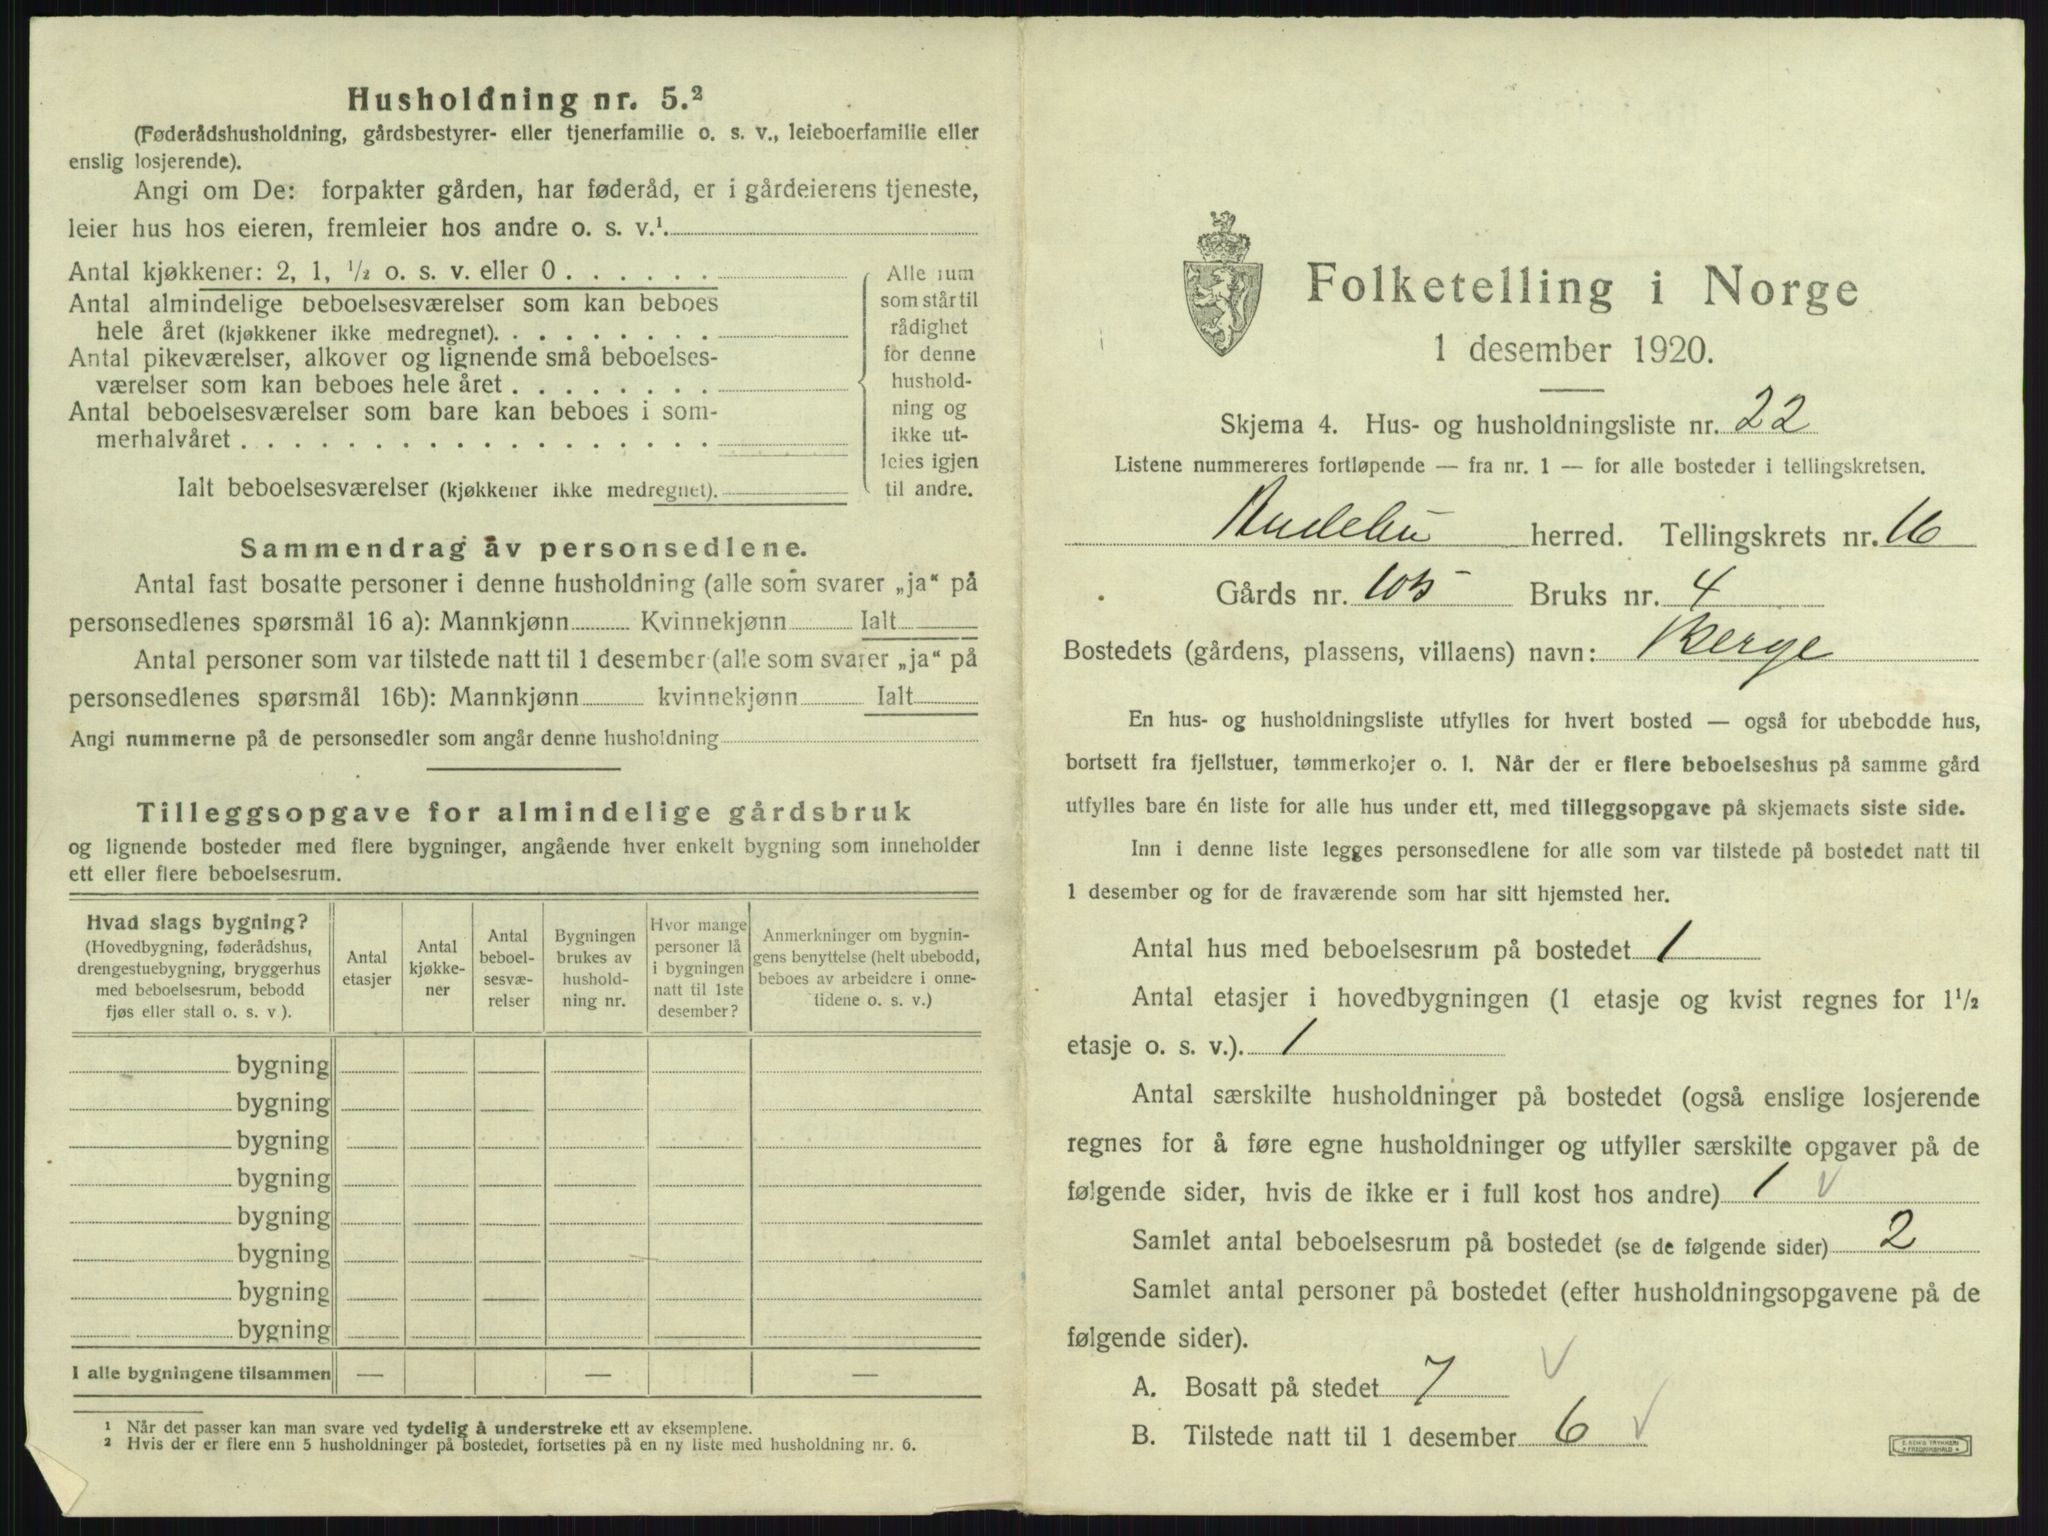 Husholdning nr. 5.²
(Føderådshusholdning, gårdsbestyrer- eller tjenerfamilie o. s. v., leieboerfamilie eller
enslig losjerende).
Angi om De: forpakter gården, har føderåd, er i gårdeierens tjeneste,
leier hus hos eieren, fremleier hos andre o. s. v.¹
Antal kjøkkener: 2, 1, ½ o. s. v. eller 0 . . . . . .
Antal almindelige beboelsesværelser som kan beboes
hele året (kjøkkener ikke medregnet). . . . . . . . .
Antal pikeværelser, alkover og lignende små beboelses-
værelser som kan beboes hele året . . . . . . . .
Antal beboelsesværelser som bare kan beboes i som-
merhalvåret . . . . . . . . . . . . . . . . . .
Ialt beboelsesværelser (kjøkkener ikke medregnet).
Alle rum
som står til
rådighet
for denne
hushold-
ning og
ikke ut-
leies igjen
til andre.
Sammendrag av personsedlene.
Antal fast bosatte personer i denne husholdning (alle som svarer „ja“ på
personsedlenes spørsmål 16 a): Mannkjønn Kvinnekjønn Ialt
Antal personer som var tilstede natt til 1 desember (alle som svarer „ja“ på
personsedlenes spørsmål 16b): Mannkjønn kvinnekjønn Ialt
Angi nummerne på de personsedler som angår denne husholdning
Tilleggsopgave for almindelige gårdsbruk
og lignende bosteder med flere bygninger, angående hver enkelt bygning som inneholder
ett eller flere beboelsesrum.
Hvad slags bygning?
(Hovedbygning, føderådshus,
drengestuebygning, bryggerhus
med beboelsesrum, bebodd
fjøs eller stall o. s. v ).
Antal
etasjer
Antal
kjøkke-
ner
Antal
beboel-
sesvæ-
relser
Bygningen
brukes av
hushold-
ning nr.
Hvor mange
personer lå
i bygningen
natt til 1ste
desember?
Anmerkninger om bygnin-
gens benyttelse (helt ubebodd,
beboes av arbeidere i onne-
tidene o. s. v.)
bygning
bygning
bygning
bygning
bygning
bygning
bygning
bygning
I alle bygningene tilsammen — — —
¹ Når det passer kan man svare ved tydelig å understreke ett av eksemplene.
² Hvis der er flere enn 5 husholdninger på bostedet, fortsettes på en ny liste med husholdning nr. 6.
Folketelling i Norge
1 desember 1920.
Skjema 4. Hus- og husholdningsliste nr. 22
Listene nummereres fortløpende — fra nr. 1 — for alle bosteder i tellingskretsen.
Andebu herred. Tellingskrets nr. 16
Gårds nr. 105 Bruks nr. 4
Bostedets (gårdens, plassens, villaens) navn: Berge
En hus- og husholdningsliste utfylles for hvert bosted — også for ubebodde hus,
bortsett fra fjellstuer, tømmerkojer o. l. Når der er flere beboelseshus på samme gård
utfylles bare én liste for alle hus under ett, med tilleggsopgave på skjemaets siste side.
Inn i denne liste legges personsedlene for alle som var tilstede på bostedet natt til
1 desember og for de fraværende som har sitt hjemsted her.
Antal hus med beboelsesrum på bostedet 1
Antal etasjer i hovedbygningen (1 etasje og kvist regnes for 1½
etasje o. s. v.). 1
Antal særskilte husholdninger på bostedet (også enslige losjerende
regnes for å føre egne husholdninger og utfyller særskilte opgaver på de
følgende sider, hvis de ikke er i full kost hos andre) 1 √
Samlet antal beboelsesrum på bostedet (se de følgende sider) 2
Samlet antal personer på bostedet (efter husholdningsopgavene på de
følgende sider).
A. Bosatt på stedet 7 √
B. Tilstede natt til 1 desember 6 √